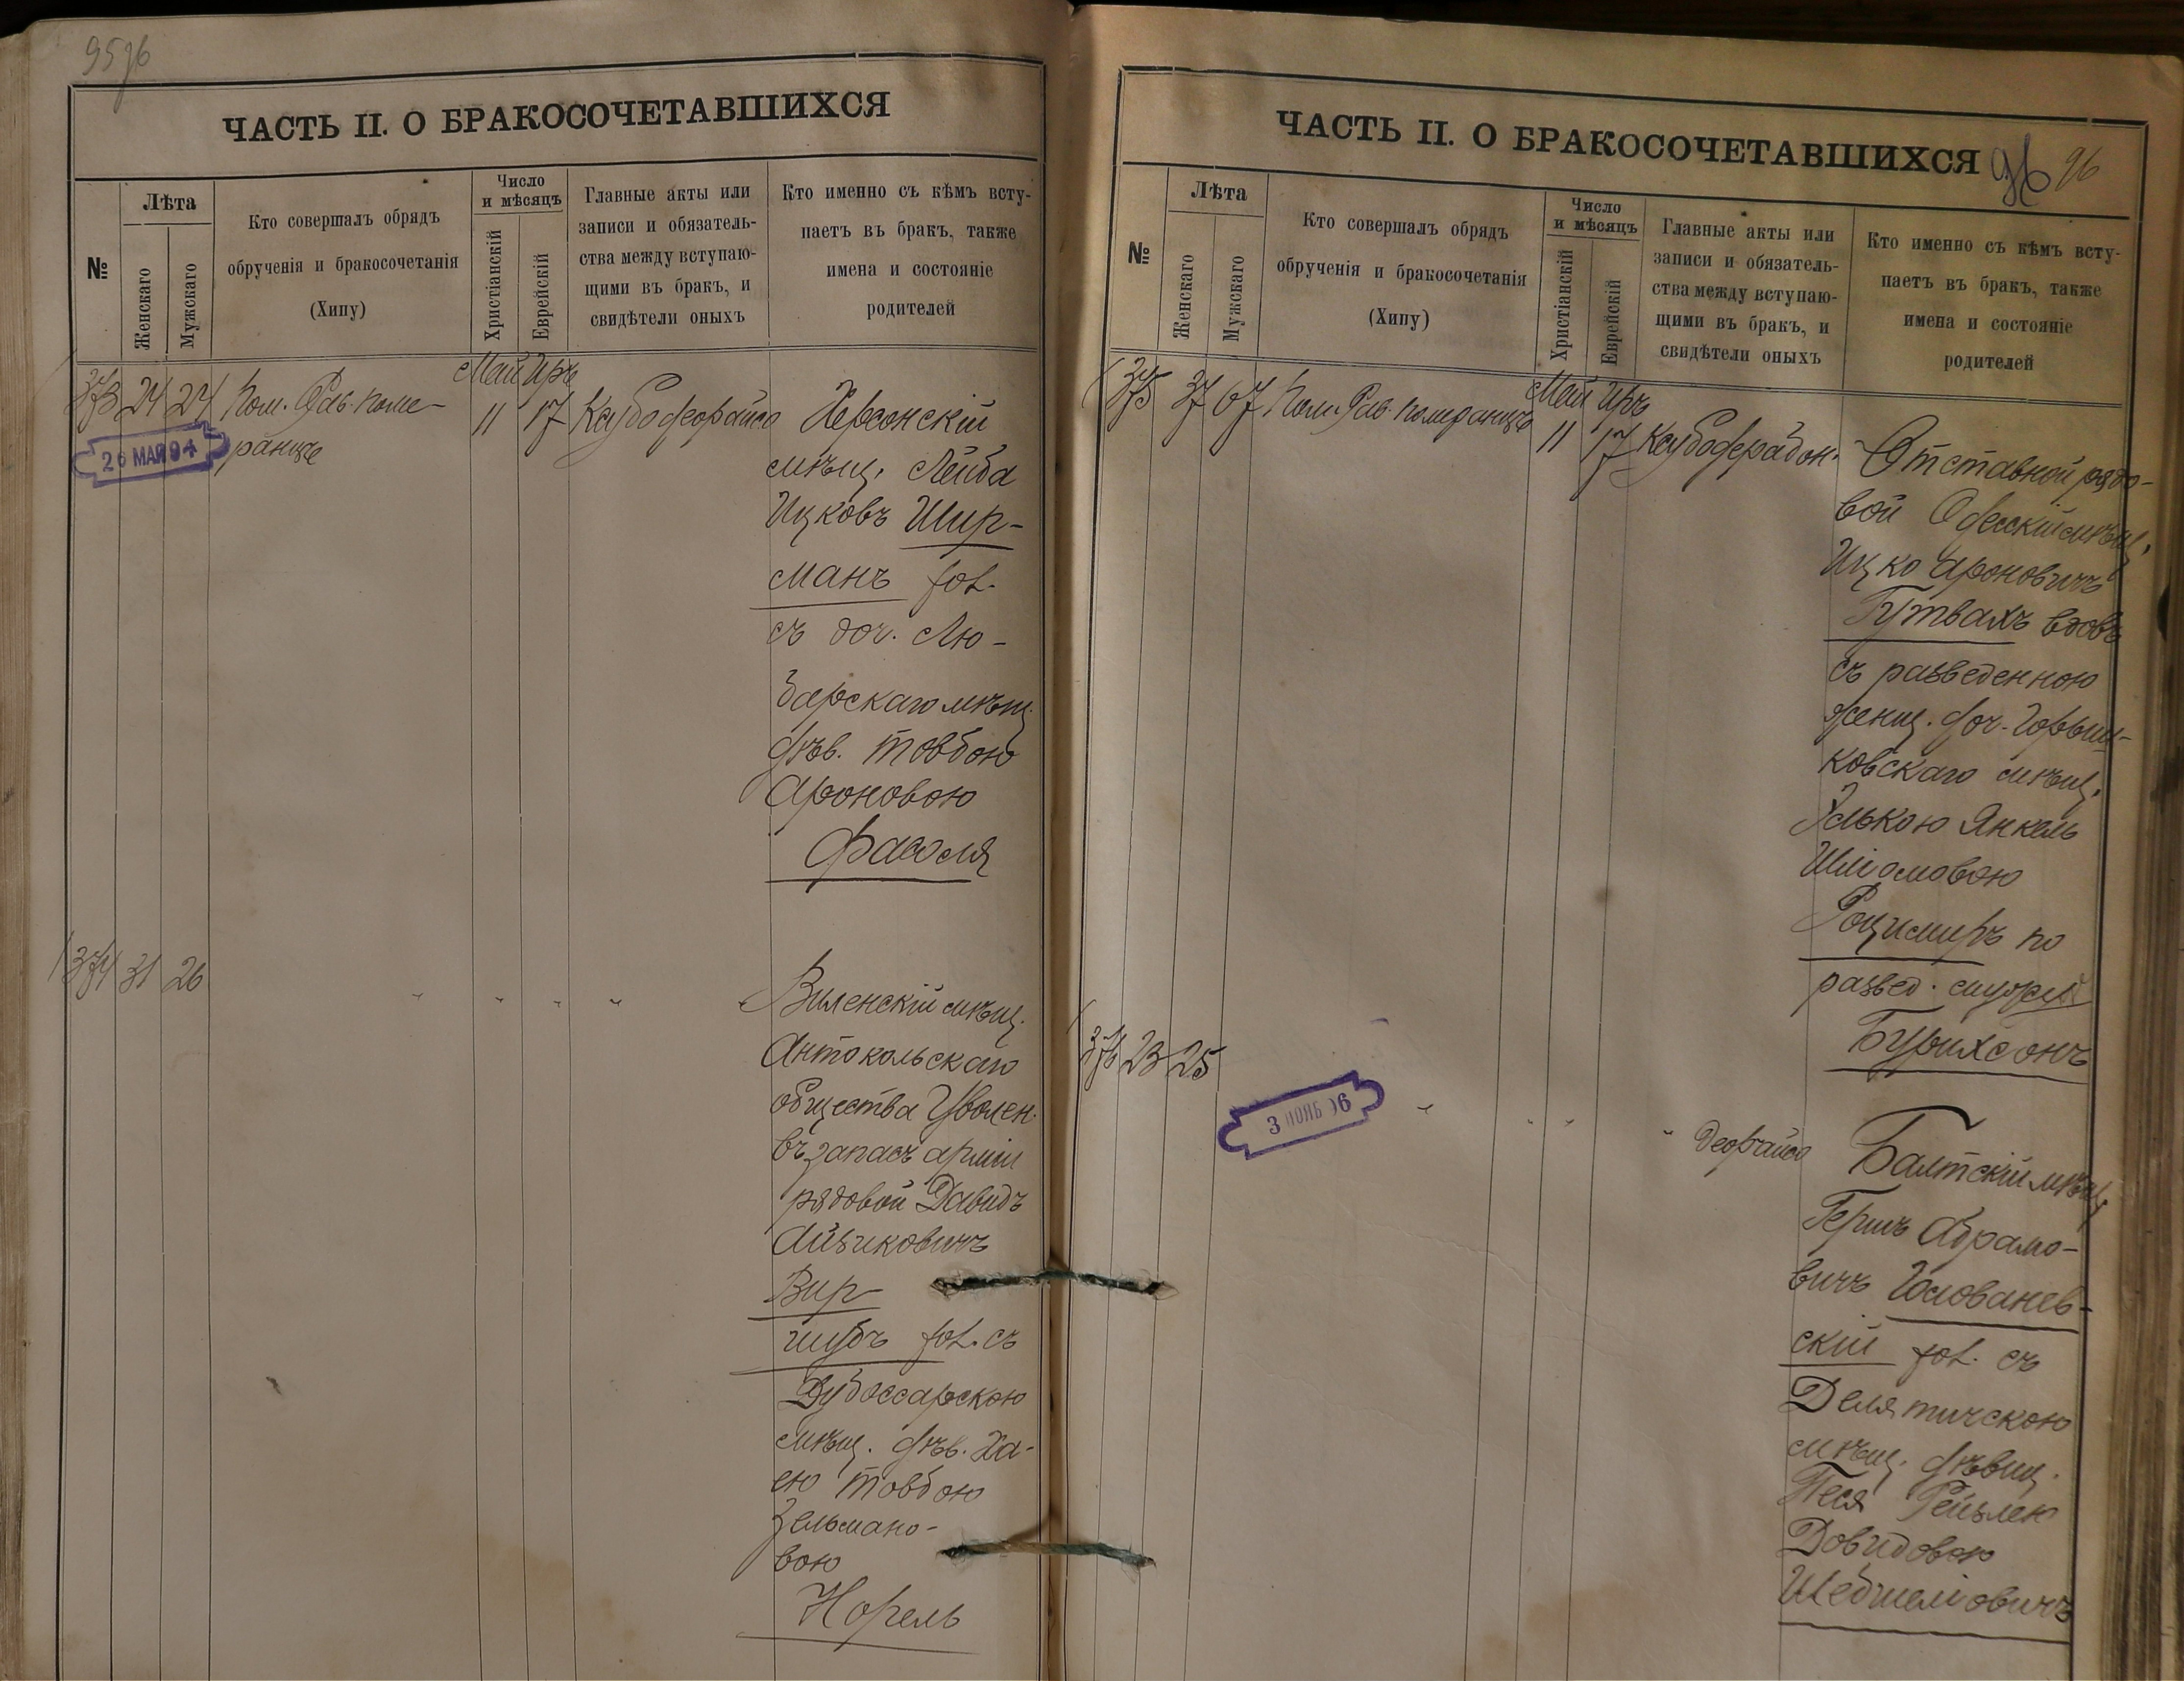 95 96
ЧАСТЬ II. О БРАКОСОЧЕТАВШИХСЯ
№
Лѣта
Женскаго
Мужскаго
Кто совершалъ обрядъ
обрученія и бракосочетанія
(Хипу)
Число
и мѣсяцъ
Христіанскій
Еврейскій
Главные акты или
записи и обязатель-
ства между вступаю-
щими въ бракъ, и
свидѣтели оныхъ
Кто именно съ кѣмъ всту-
паетъ въ бракъ, также
имена и состояніе
родителей
Май Иръ
373 24 24 Пом. Рав. Поме-
ранце
11 17
26 МАЯ 94
Херсонскій
мѣщ. Лейба
Ицковъ Шир-
манъ хол.
съ доч. Лю-
барскаго мѣщ.
дѣв. Товбою
Ароновою
Фасоля
374 31 26
Виленскій мѣщ.
Антокольскаго
общества Уволен.
въ запасъ арміи
рядовой Давидъ
Айзиковичъ
Вир-
шубъ хол. съ
Дубоссарскою
мѣщ. дѣв. Ха-
ею Товбою
Зельмано-
вою
Норель
ЧАСТЬ II. О БРАКОСОЧЕТАВШИХСЯ
96 96
№
Лѣта
Женскаго
Мужскаго
Кто совершалъ обрядъ
обрученія и бракосочетанія
(Хипу)
Число
и мѣсяцъ
Христіанскій
Еврейскій
Главные акты или
записи и обязатель-
ства между вступаю-
щими въ бракъ, и
свидѣтели оныхъ
Кто именно съ кѣмъ всту-
паетъ въ бракъ, также
имена и состояніе
родителей
Май Иръ
375 37 67 Пом. Рав. Померанце
11 17
Отставной рядо-
вой Одесскій мѣщ.
Ицко Ароновичъ
Гутвахъ вдовъ
съ разведенною
женщ. доч.
ковскаго мѣщ.
Янкель
Шліомовою
Роцимиръ по
развед.
376 23 25
3 НОЯБ 96
Балтскій мѣщ.
Гершъ Абрамо-
вичъ Голованев-
скій хол. съ
Делятичскою
мѣщ. дѣвиц.
Песя Рейзлею
Довидовою